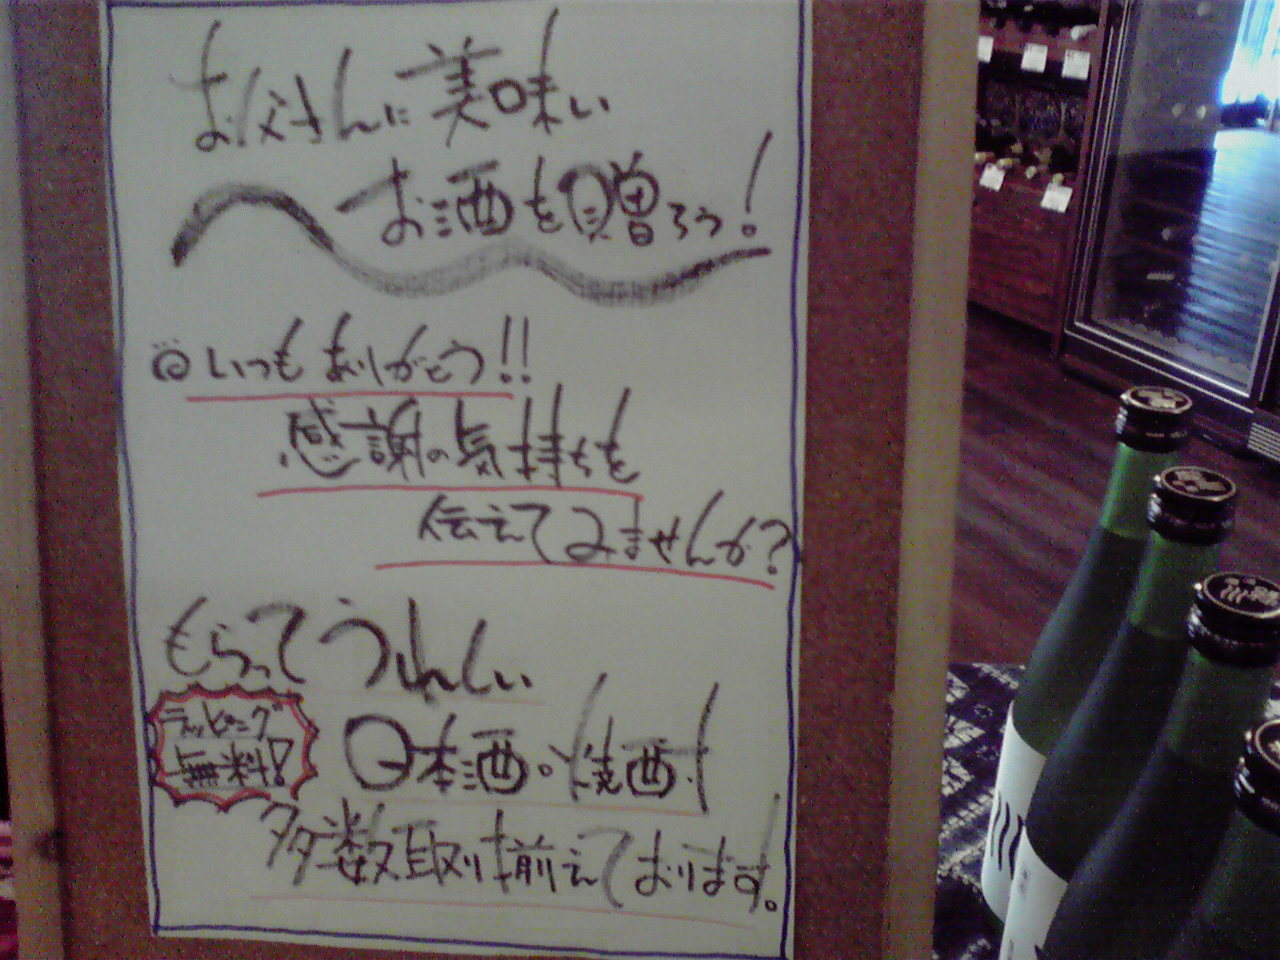 お父さんに美味い
お酒を贈ろう!
◎いつもありがとう!!
感謝の気持ちを
伝えてみませんか?
もらってうれしい
ラッピング
無料!
日本酒・焼酎
多数取り揃えております。